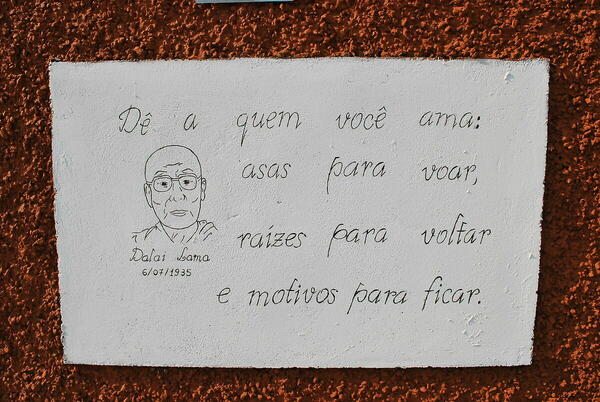 Dê a quem você ama:
asas para voar,
raízes para voltar
Dalai Lama
6/07/1935
e motivos para ficar.